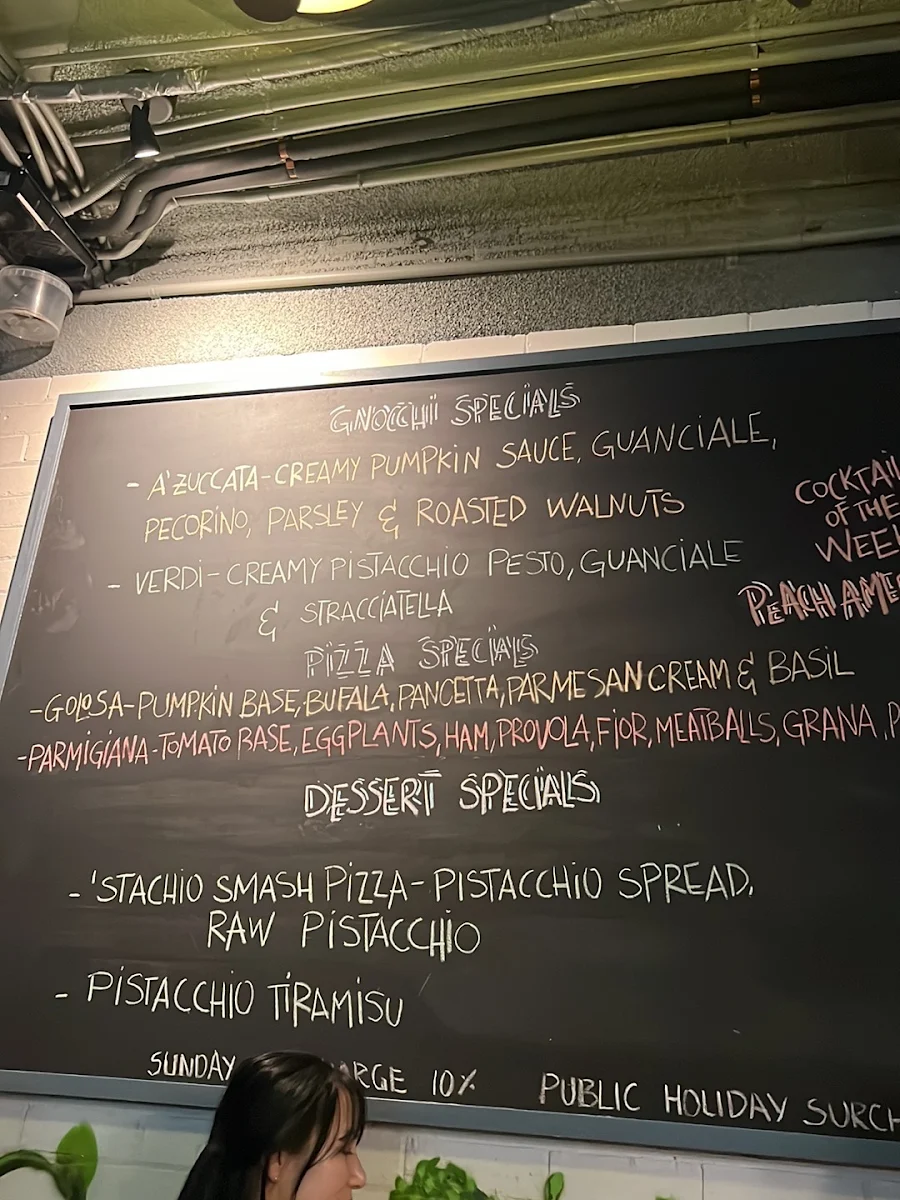 GNOCCHI SPECIALS
- A'ZUCCATA-CREAMY PUMPKIN SAUCE, GUANCIALE,
PECORINO, PARSLEY & ROASTED WALNUTS
- VERDI-CREAMY PISTACCHIO PESTO, GUANCIALE
& STRACCIATELLA
PIZZA SPECIALS
-GOLOSA-PUMPKIN BASE, BUFALA, PANCETTA, PARMESAN CREAM & BASIL
-PARMIGIANA-TOMATO BASE, EGGPLANTS, HAM, PROVOLA, FIOR, MEATBALLS, GRANA,
DESSERT SPECIALS
- 'STACHIO SMASH PIZZA-PISTACCHIO SPREAD,
RAW PISTACCHIO
- PISTACCHIO TIRAMISU
SUNDAY 10%
PUBLIC HOLIDAY
OF THE
PEACH